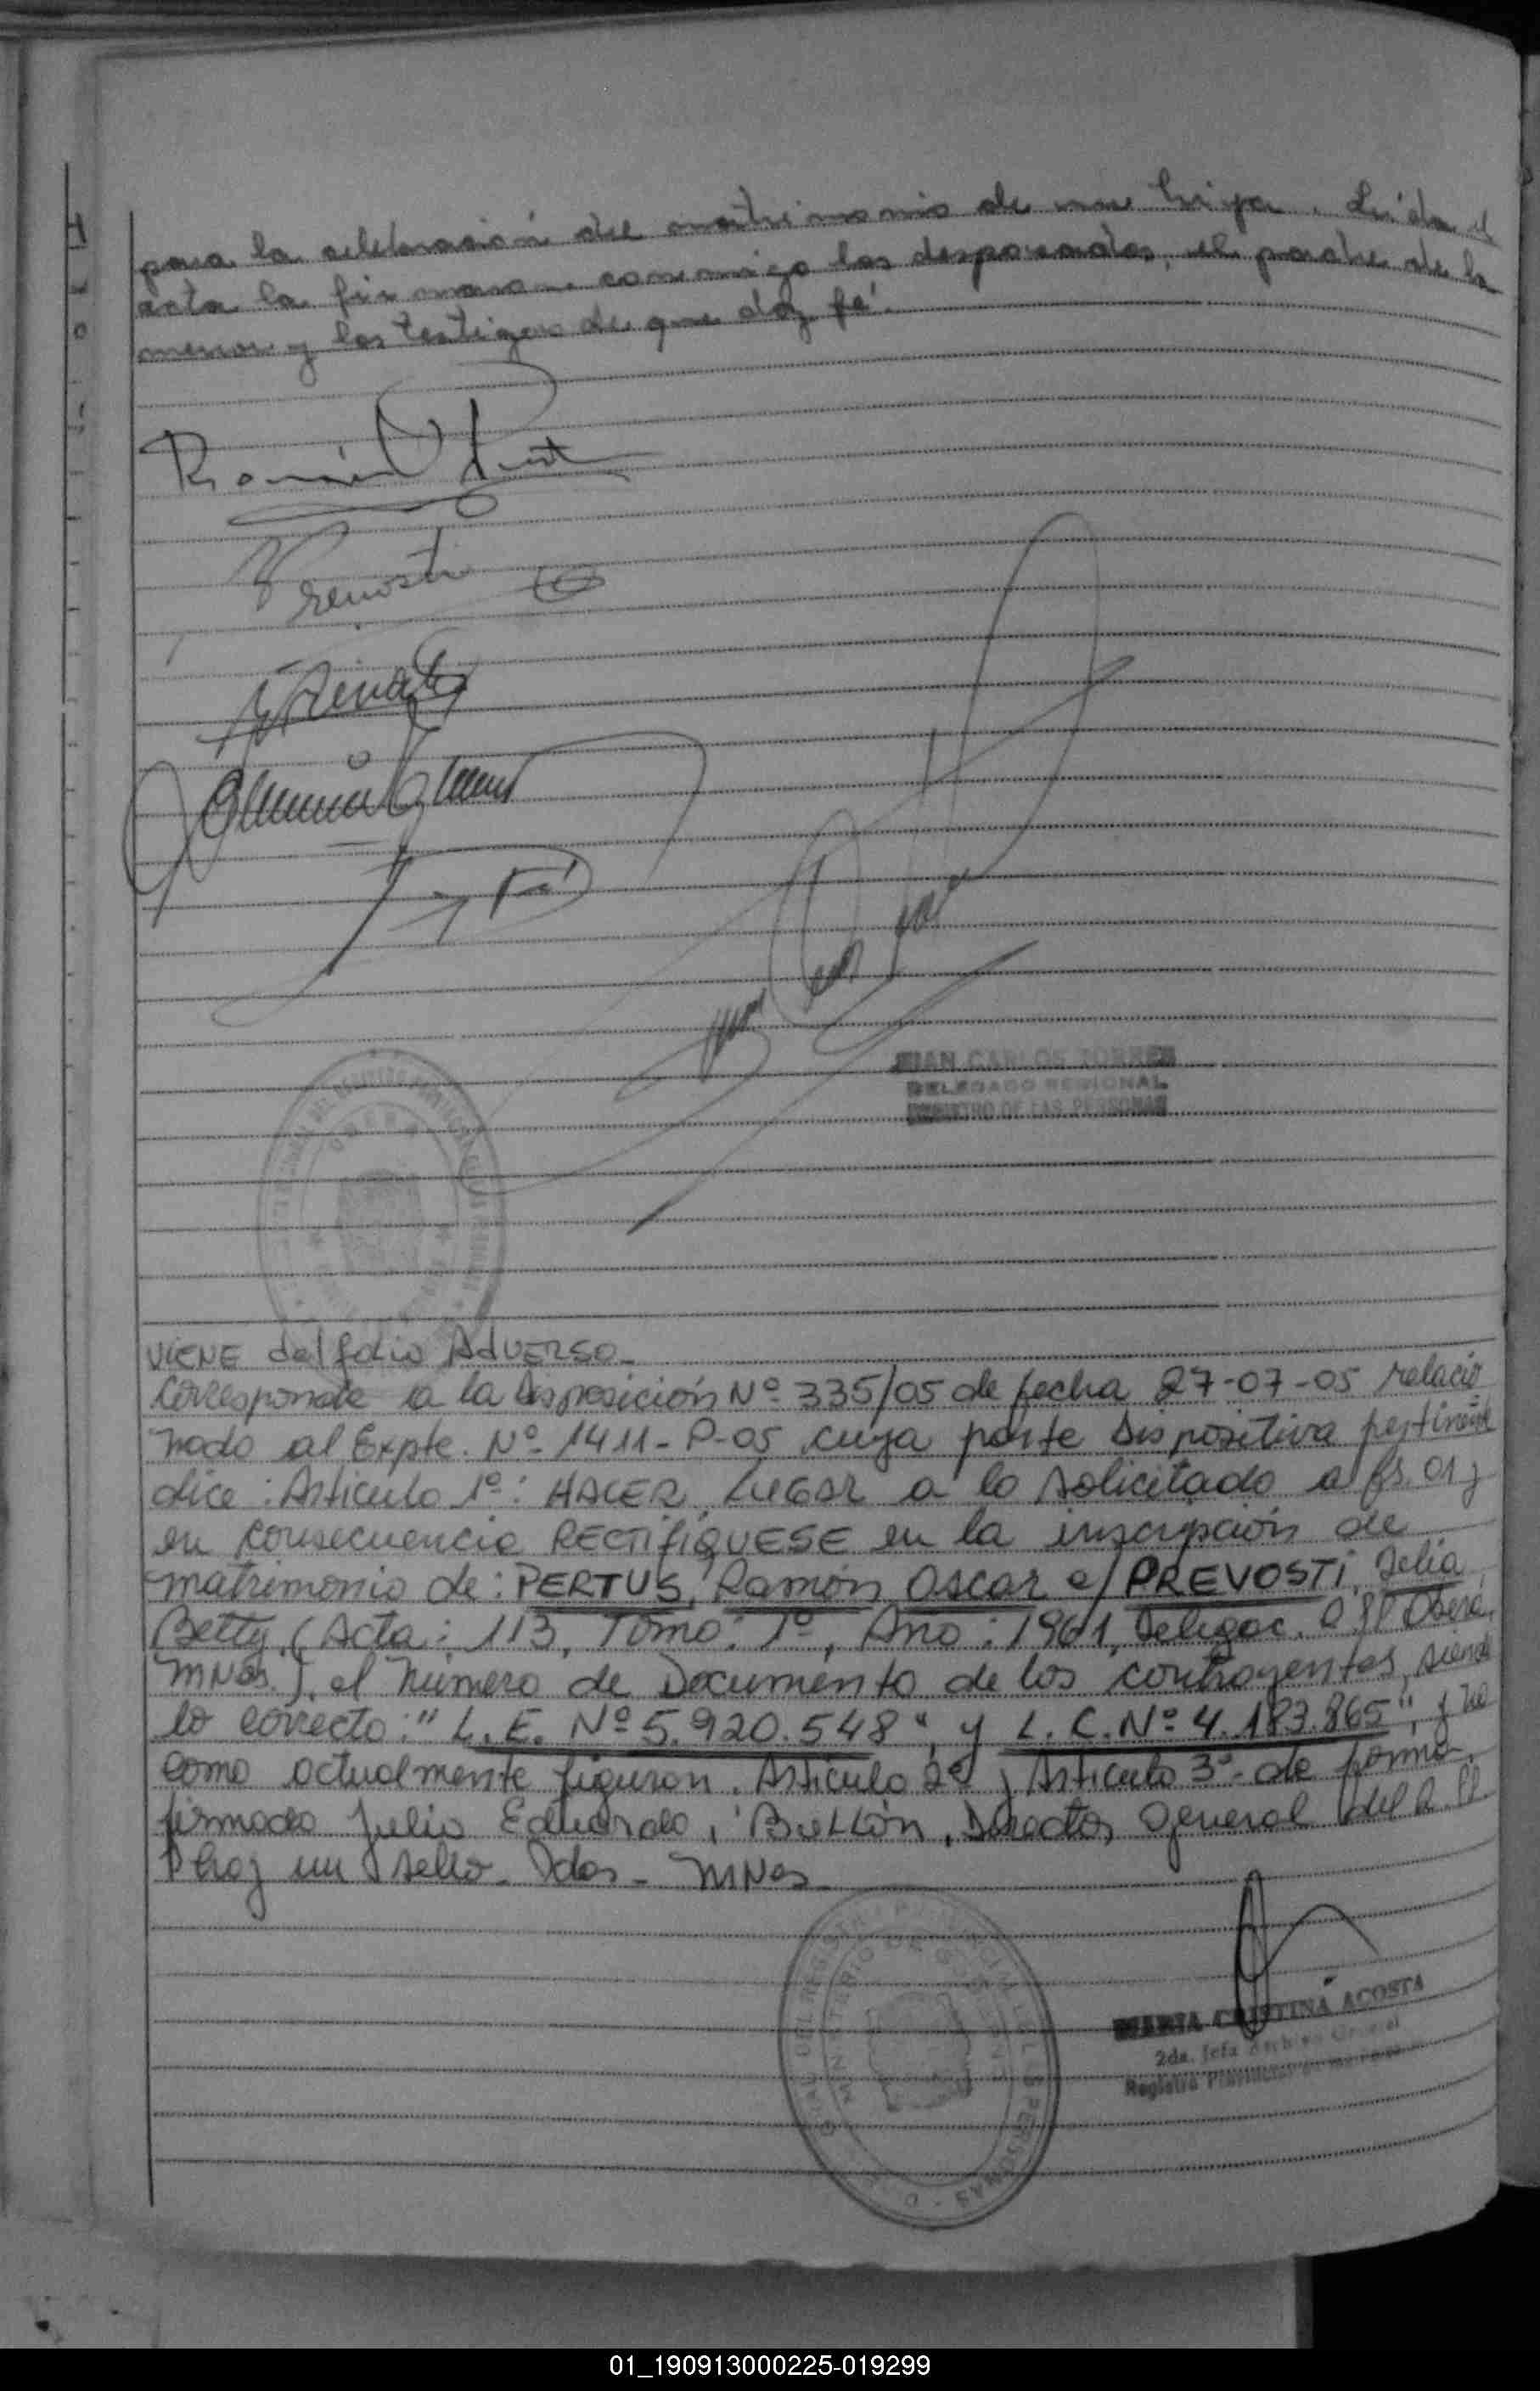 para la celebración del matrimonio de una hija. Leída el
acta la firmaron conmigo los desposados, el padre de la
menor y los testigos de que doy fé.
Ramón
Prevosti
JUAN CARLOS TORRES
DELEGADO REGIONAL
REGISTRO DE LAS PERSONAS
VIENE del folio AdVERSO.
Corresponde a la Disposición Nº 335/05 de fecha 27-07-05 relacio
nado al Expte. Nº 1411-P-05 cuya parte Dispositiva pertinente
dice: Artículo 1º: HACER LUGAR a lo solicitado a fs. 01 y
en consecuencia RECTIFIQUESE en la inscripción de
matrimonio de: PERTUS, Ramón Oscar c/ PREVOSTI, Delia
Betty, (Acta: 113, Tomo: 1º, Año: 1961, Delegac. R.PP Oberá,
MNes.), el Número de Documento de los contrayentes, siendo
lo correcto: "L.E. Nº 5.920.548", y L.C. Nº 4.183.865", y no
como actualmente figuran. Artículo 2º y Artículo 3º- de forma.
firmado Julio Eduardo, Director General del R.PP
hay un sello. Pdas - MNes.
MARIA CRISTINA ACOSTA
2da. Jefa Archivo General
Registro Provincial